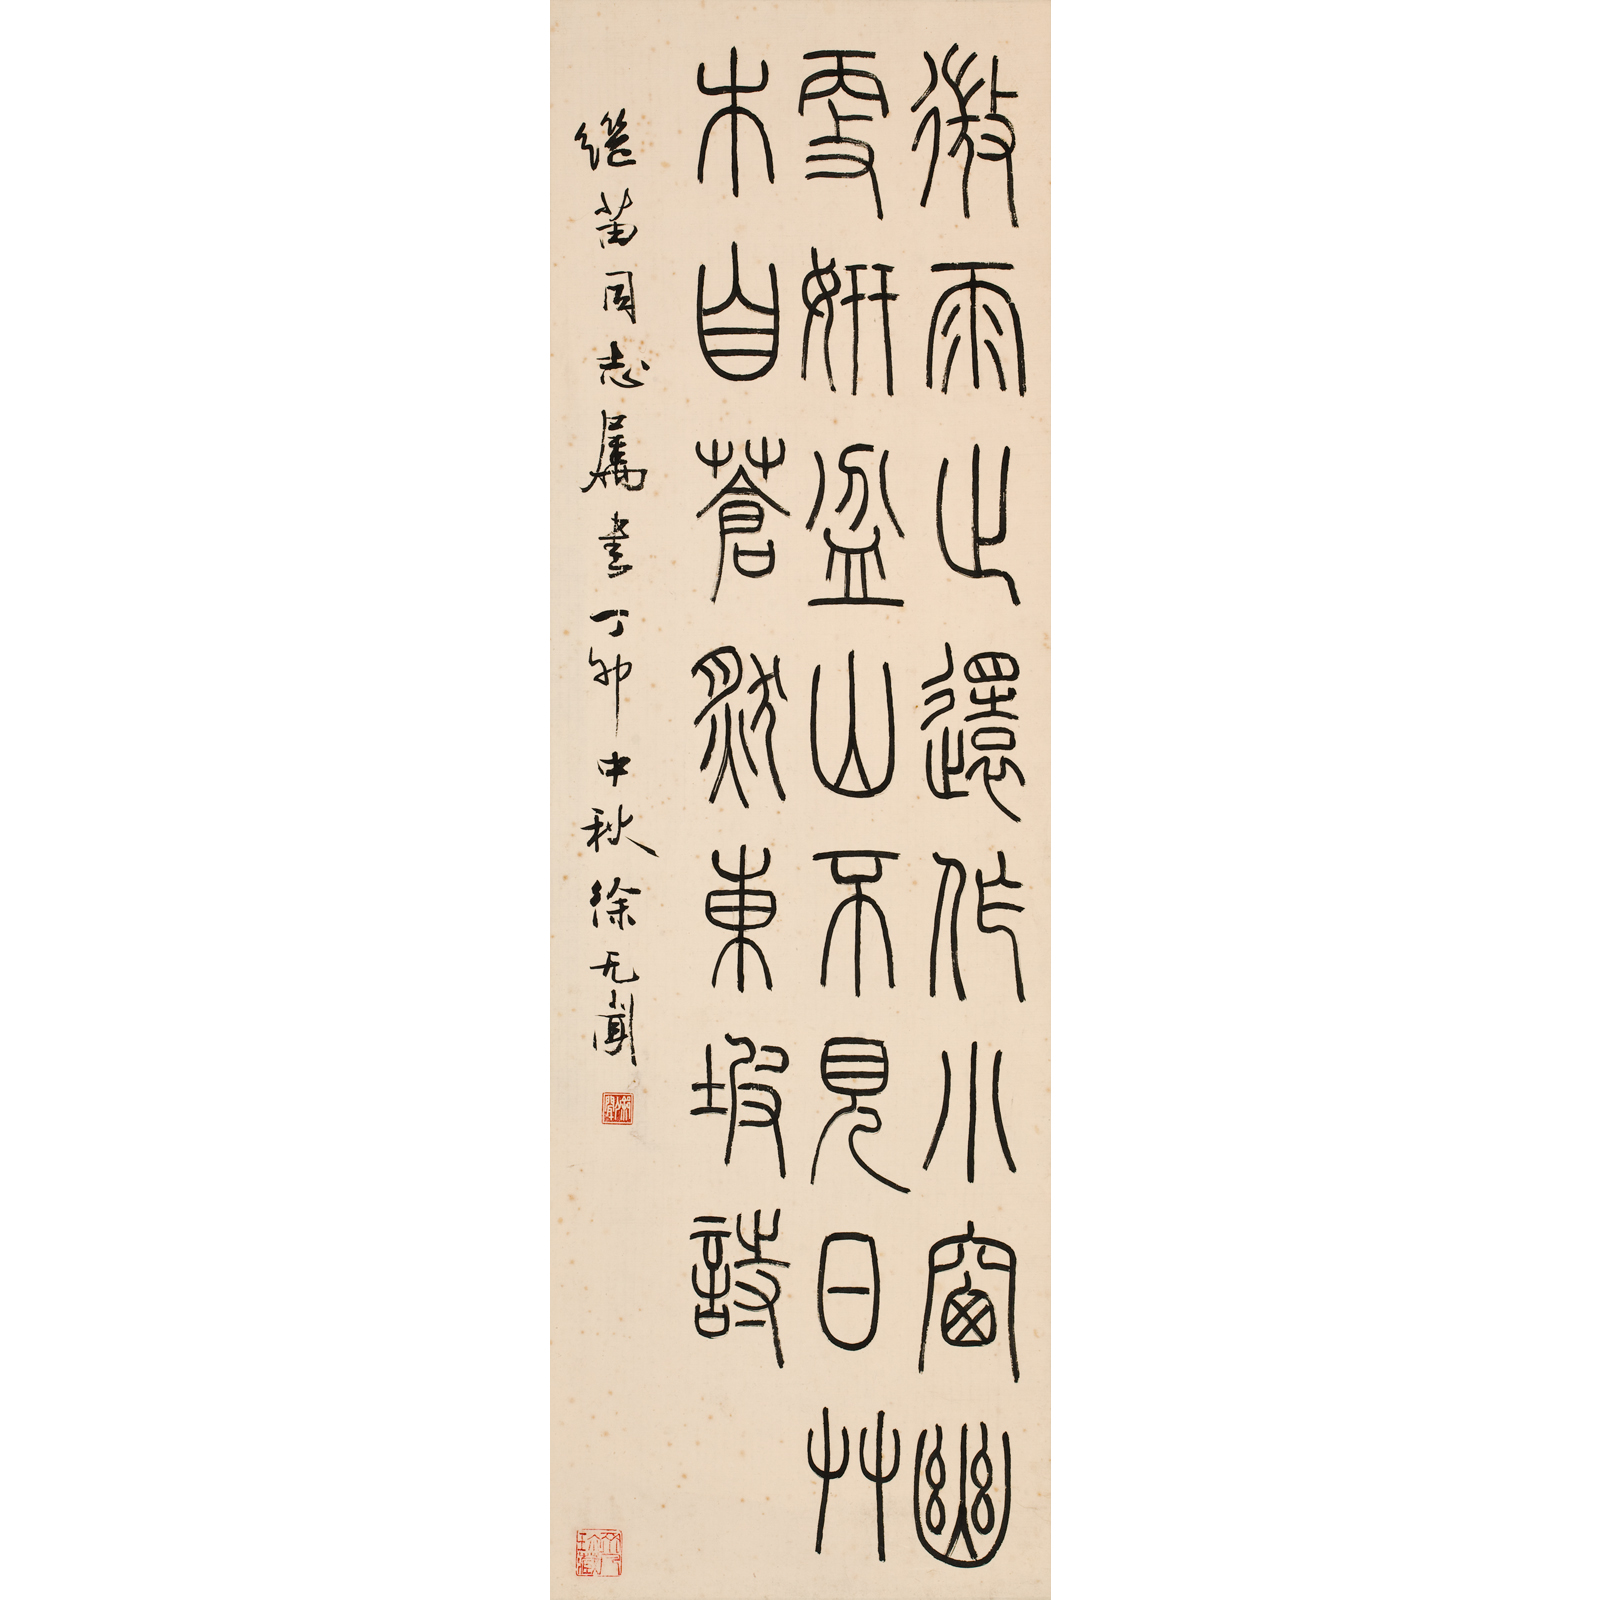 微雨止還作小窗幽
更妍盆山不見日艸
木自蒼然東坡詩
繼苗同志屬書丁卯中秋徐无聞